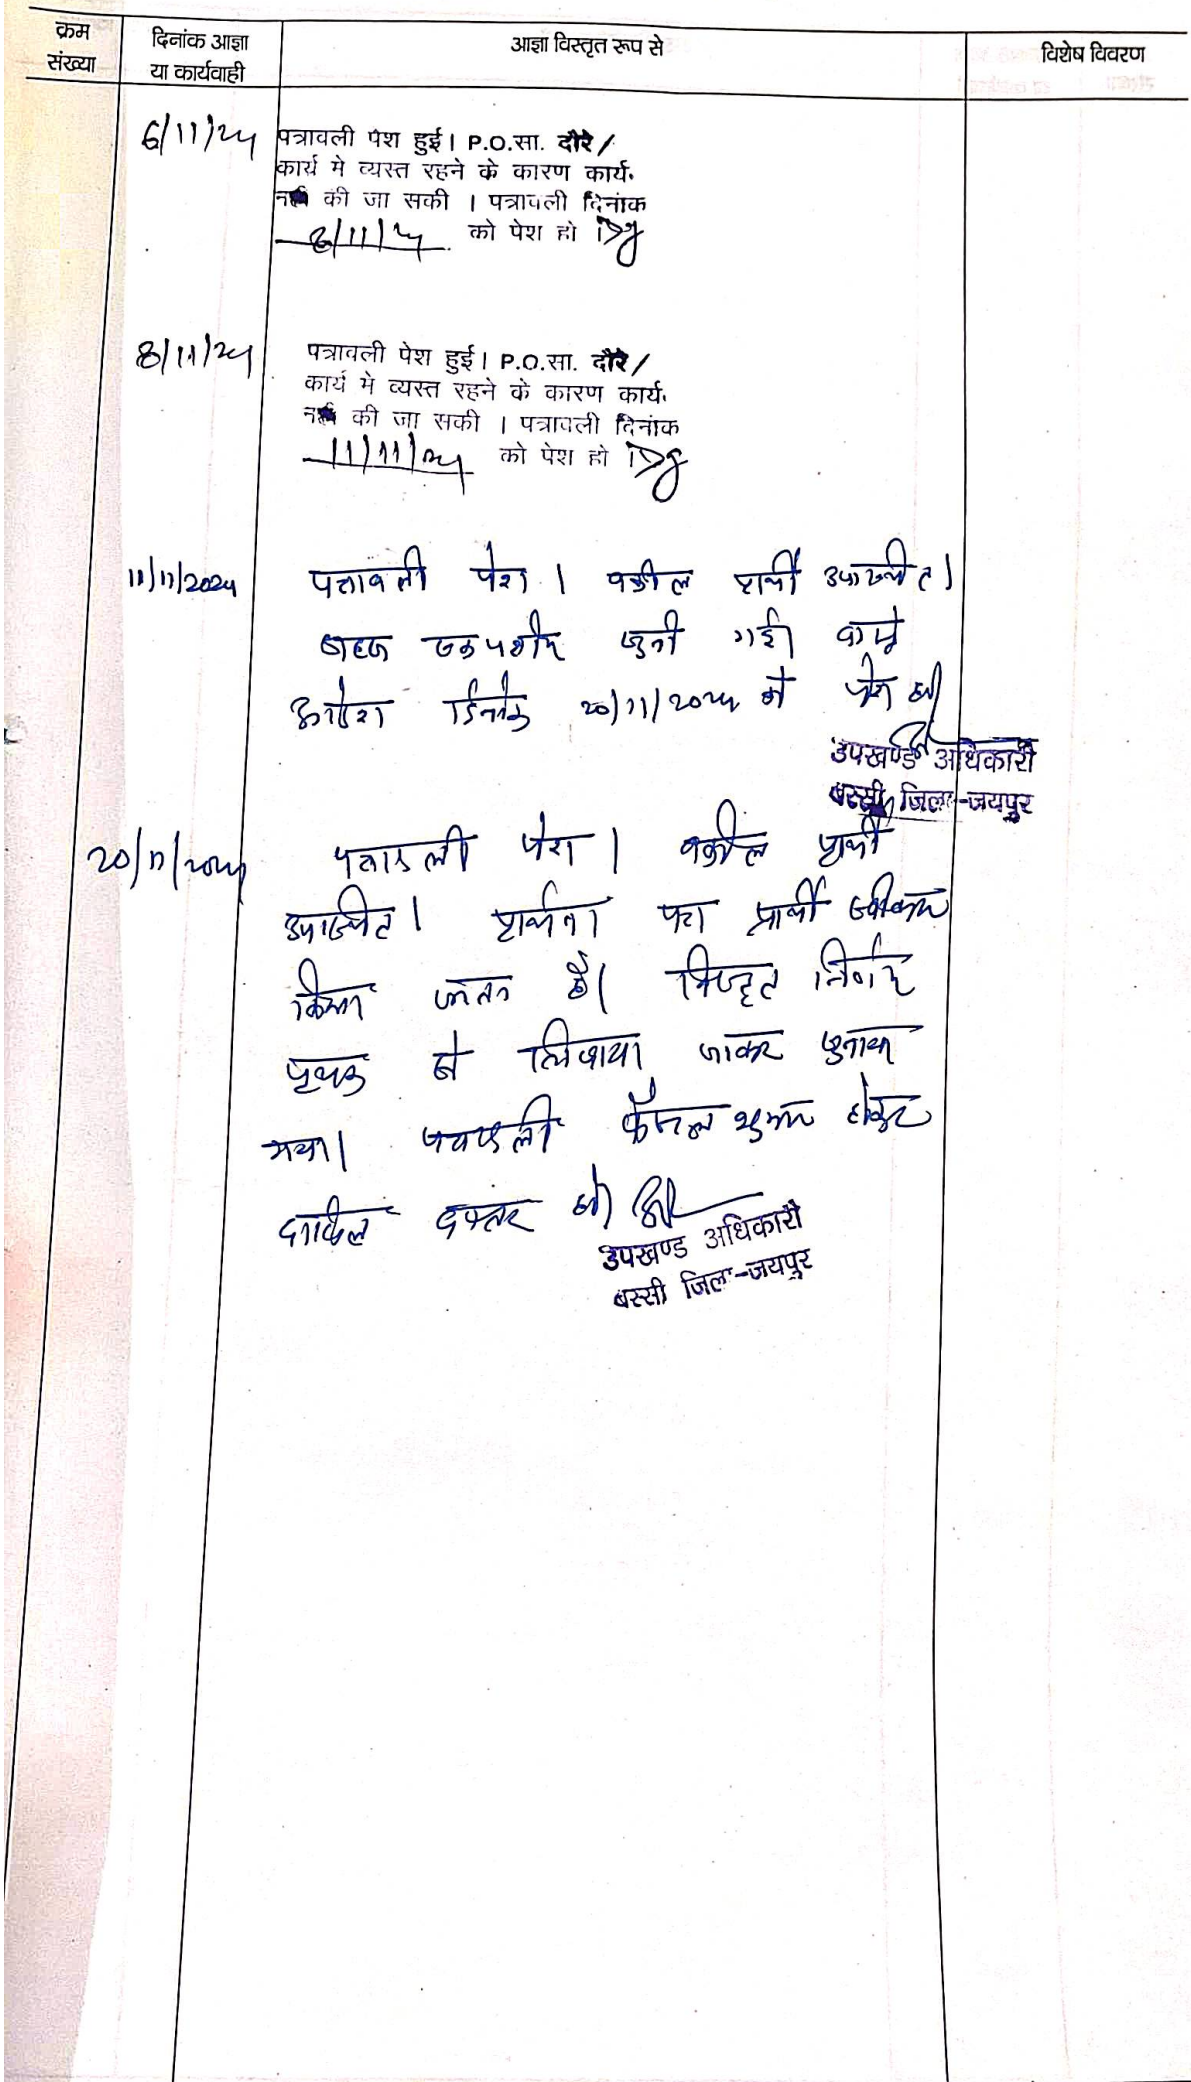 क्रम संख्या
दिनांक आज्ञा या कार्यवाही
आज्ञा विस्तृत रूप से
विशेष विवरण
6/11/24 पत्रावली पेश हुई। P.O.सा. दौरे/
कार्य मे व्यस्त रहने के कारण कार्य.
नहीं की जा सकी । पत्रावली दिनांक
8/11/24 को पेश हो
8/11/24 पत्रावली पेश हुई। P.O.सा. दौरे/
कार्य मे व्यस्त रहने के कारण कार्य.
नहीं की जा सकी । पत्रावली दिनांक
11/11/24 को पेश हो
11/11/2024 पत्रावली पेश । वकील प्रार्थी उपस्थित।
बहस एकपक्षीय सुनी गई। वास्ते
आदेश दिनांक 20/11/2024 को पेश हो।
उपखण्ड अधिकारी
बस्सी जिला-जयपुर
20/11/2024 पत्रावली पेश । वकील प्रार्थी
उपस्थित। प्रार्थना पत्र प्रार्थी स्वीकार
किया जाता है। विस्तृत निर्णय
पृथक से लिखाया जाकर सुनाया
गया। पत्रावली फैसल शुमार होकर
दाखिल दफ्तर हो।
उपखण्ड अधिकारी
बस्सी जिला-जयपुर